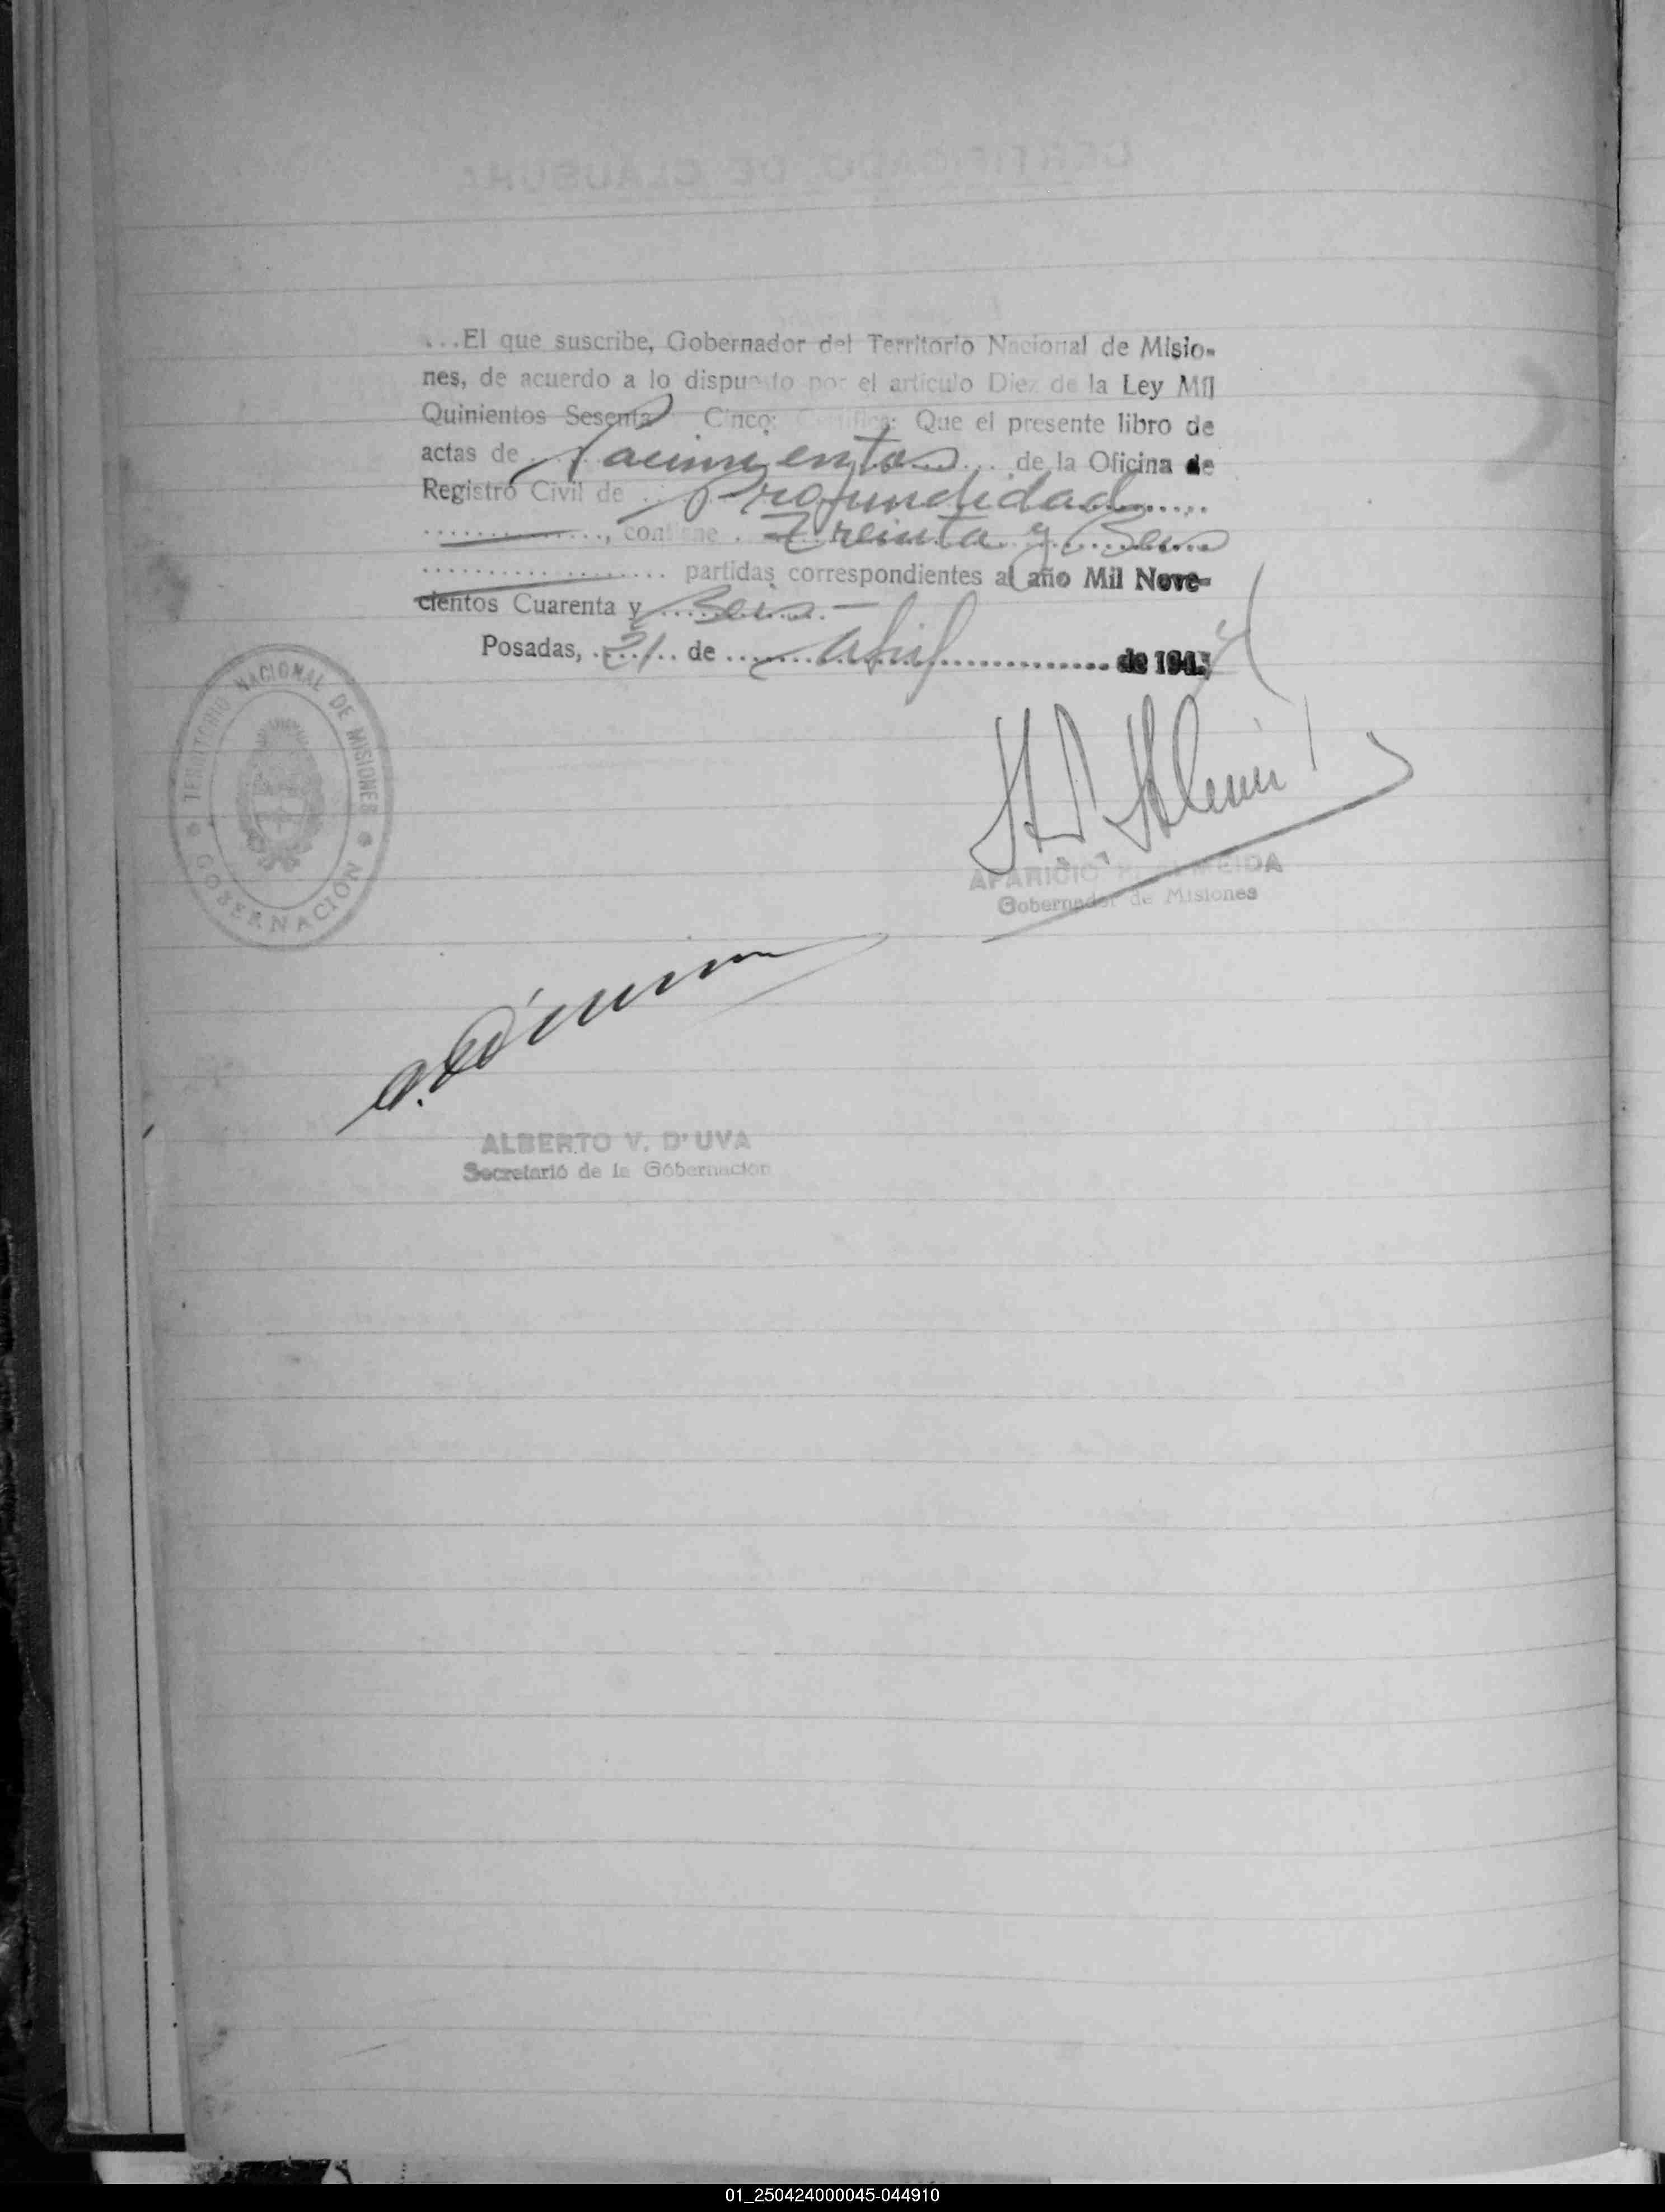 CERTIFICADO DE CLAUSURA
...El que suscribe, Gobernador del Territorio Nacional de Misio-
nes, de acuerdo a lo dispuesto por el artículo Diez de la Ley Mil
Quinientos Sesenta Cinco; Certifica: Que el presente libro de
actas de Nacimientos de la Oficina de
Registro Civil de Profundidad
, contiene Treinta y Seis
partidas correspondientes al año Mil Nove-
cientos Cuarenta y Seis.-
Posadas, 21 de Abril de 1947
TERRITORIO NACIONAL DE MISIONES
GOBERNACIÓN
APARICIO ALMEIDA
Gobernador de Misiones
ALBERTO V. D'UVA
Secretario de la Gobernación
01_250424000045-044910